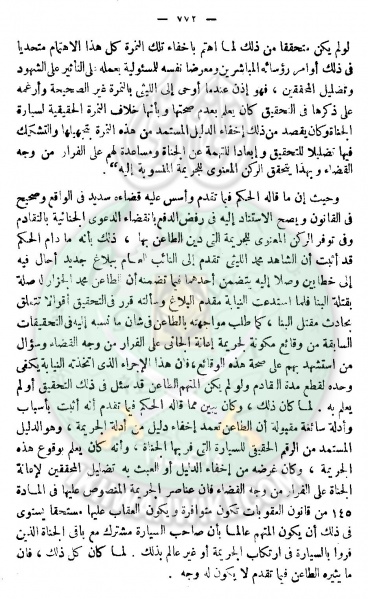 — ٧٧٢ —
لو لم يكن متحققا من ذلك لما اهتم باخفاء تلك النمرة كل هذا الاهتمام متحديا
فى ذلك أوامر رؤسائه المباشرين ومعرضا نفسه للمسئولية بعمله على التأثير على الشهود
وتضليل المحققين ، فهو إذن عندما أوحى إلى الليثى بالنمرة غير الصحيحة وأرغمه
على ذكرها فى التحقيق كان يعلم بعدم صحتها وبأنها خلاف النمرة الحقيقية لسيارة
الجناة وكان يقصد من ذلك إخفاء الدليل المستمد من هذه النمرة بتجهيلها والتشكك
فيها تضليلا للتحقيق وإبعادا للتهمة عن الجناة ومساعدة لهم على الفرار من وجه
القضاء و بهذا يتحقق الركن المعنوى للجريمة المنسوبة إليه" .
وحيث إن ما قاله الحكم فيما تقدم وأسس عليه قضاءه سديد فى الواقع وصحيح
فى القانون و يصح الاستناد إليه فى رفض الدفع بانقضاء الدعوى الجنائية بالتقادم
وفى توفر الركن المعنوى للجريمة التى دين الطاعن بها ، ذلك بأنه ما دام الحكم
قد أثبت أن الشاهد محمد الليثى تقدم إلى النائب العام ببلاغ جديد أحال فيه
إلى خطابين وصلا إليه يتضمن أحدهما فيما تضمنه أن للطاعن محمد الجزار له صلة
بقتلة البنا فلما استدعت النيابة مقدم البلاغ وسألته قرر فى التحقيق أقوالا تتعلق
بحادث مقتل البنا ، كما طلب مواجهته بالطاعن فى شأن ما نسبه إليه فى التحقيقات
السابقة من وقائع مكونة لجريمة إعانة الجانى على الفرار من وجه القضاء وسؤال
من استشهد بهم على صحة هذه الوقائع ، فان هذا الإجراء الذى اتخذته النيابة يكفى
وحده لقطع مدة التقادم ولو لم يكن المتهم الطاعن قد سئل فى ذلك التحقيق أو لم
يعلم به . لما كان ذلك ، وكان يبين مما قاله الحكم فيما تقدم أنه أثبت بأسباب
وأدلة سائغة مقبولة أن الطاعن تعمد إخفاء دليل من أدلة الجريمة ، وهو الدليل
المستمد من الرقم الحقيقى للسيارة التى فر بها الجناة ، وأنه كان يعلم بوقوع هذه
الجريمة ، وكان غرضه من إخفاء الدليل أو العبث به تضليل المحققين لإعانة
الجناة على الفرار من وجه القضاء فان عناصر الجريمة المنصوص عليها فى المادة
١٤٥ من قانون العقوبات تكون متوافرة و يكون العقاب عليها مستحقا يستوى
فى ذلك أن يكون المتهم عالما بأن صاحب السيارة مشترك مع باقى الجناة الذين
فروا بالسيارة فى ارتكاب الجريمة أو غير عالم بذلك . لما كان كل ذلك ، فان
ما يثيره الطاعن فيما تقدم لا يكون له وجه .